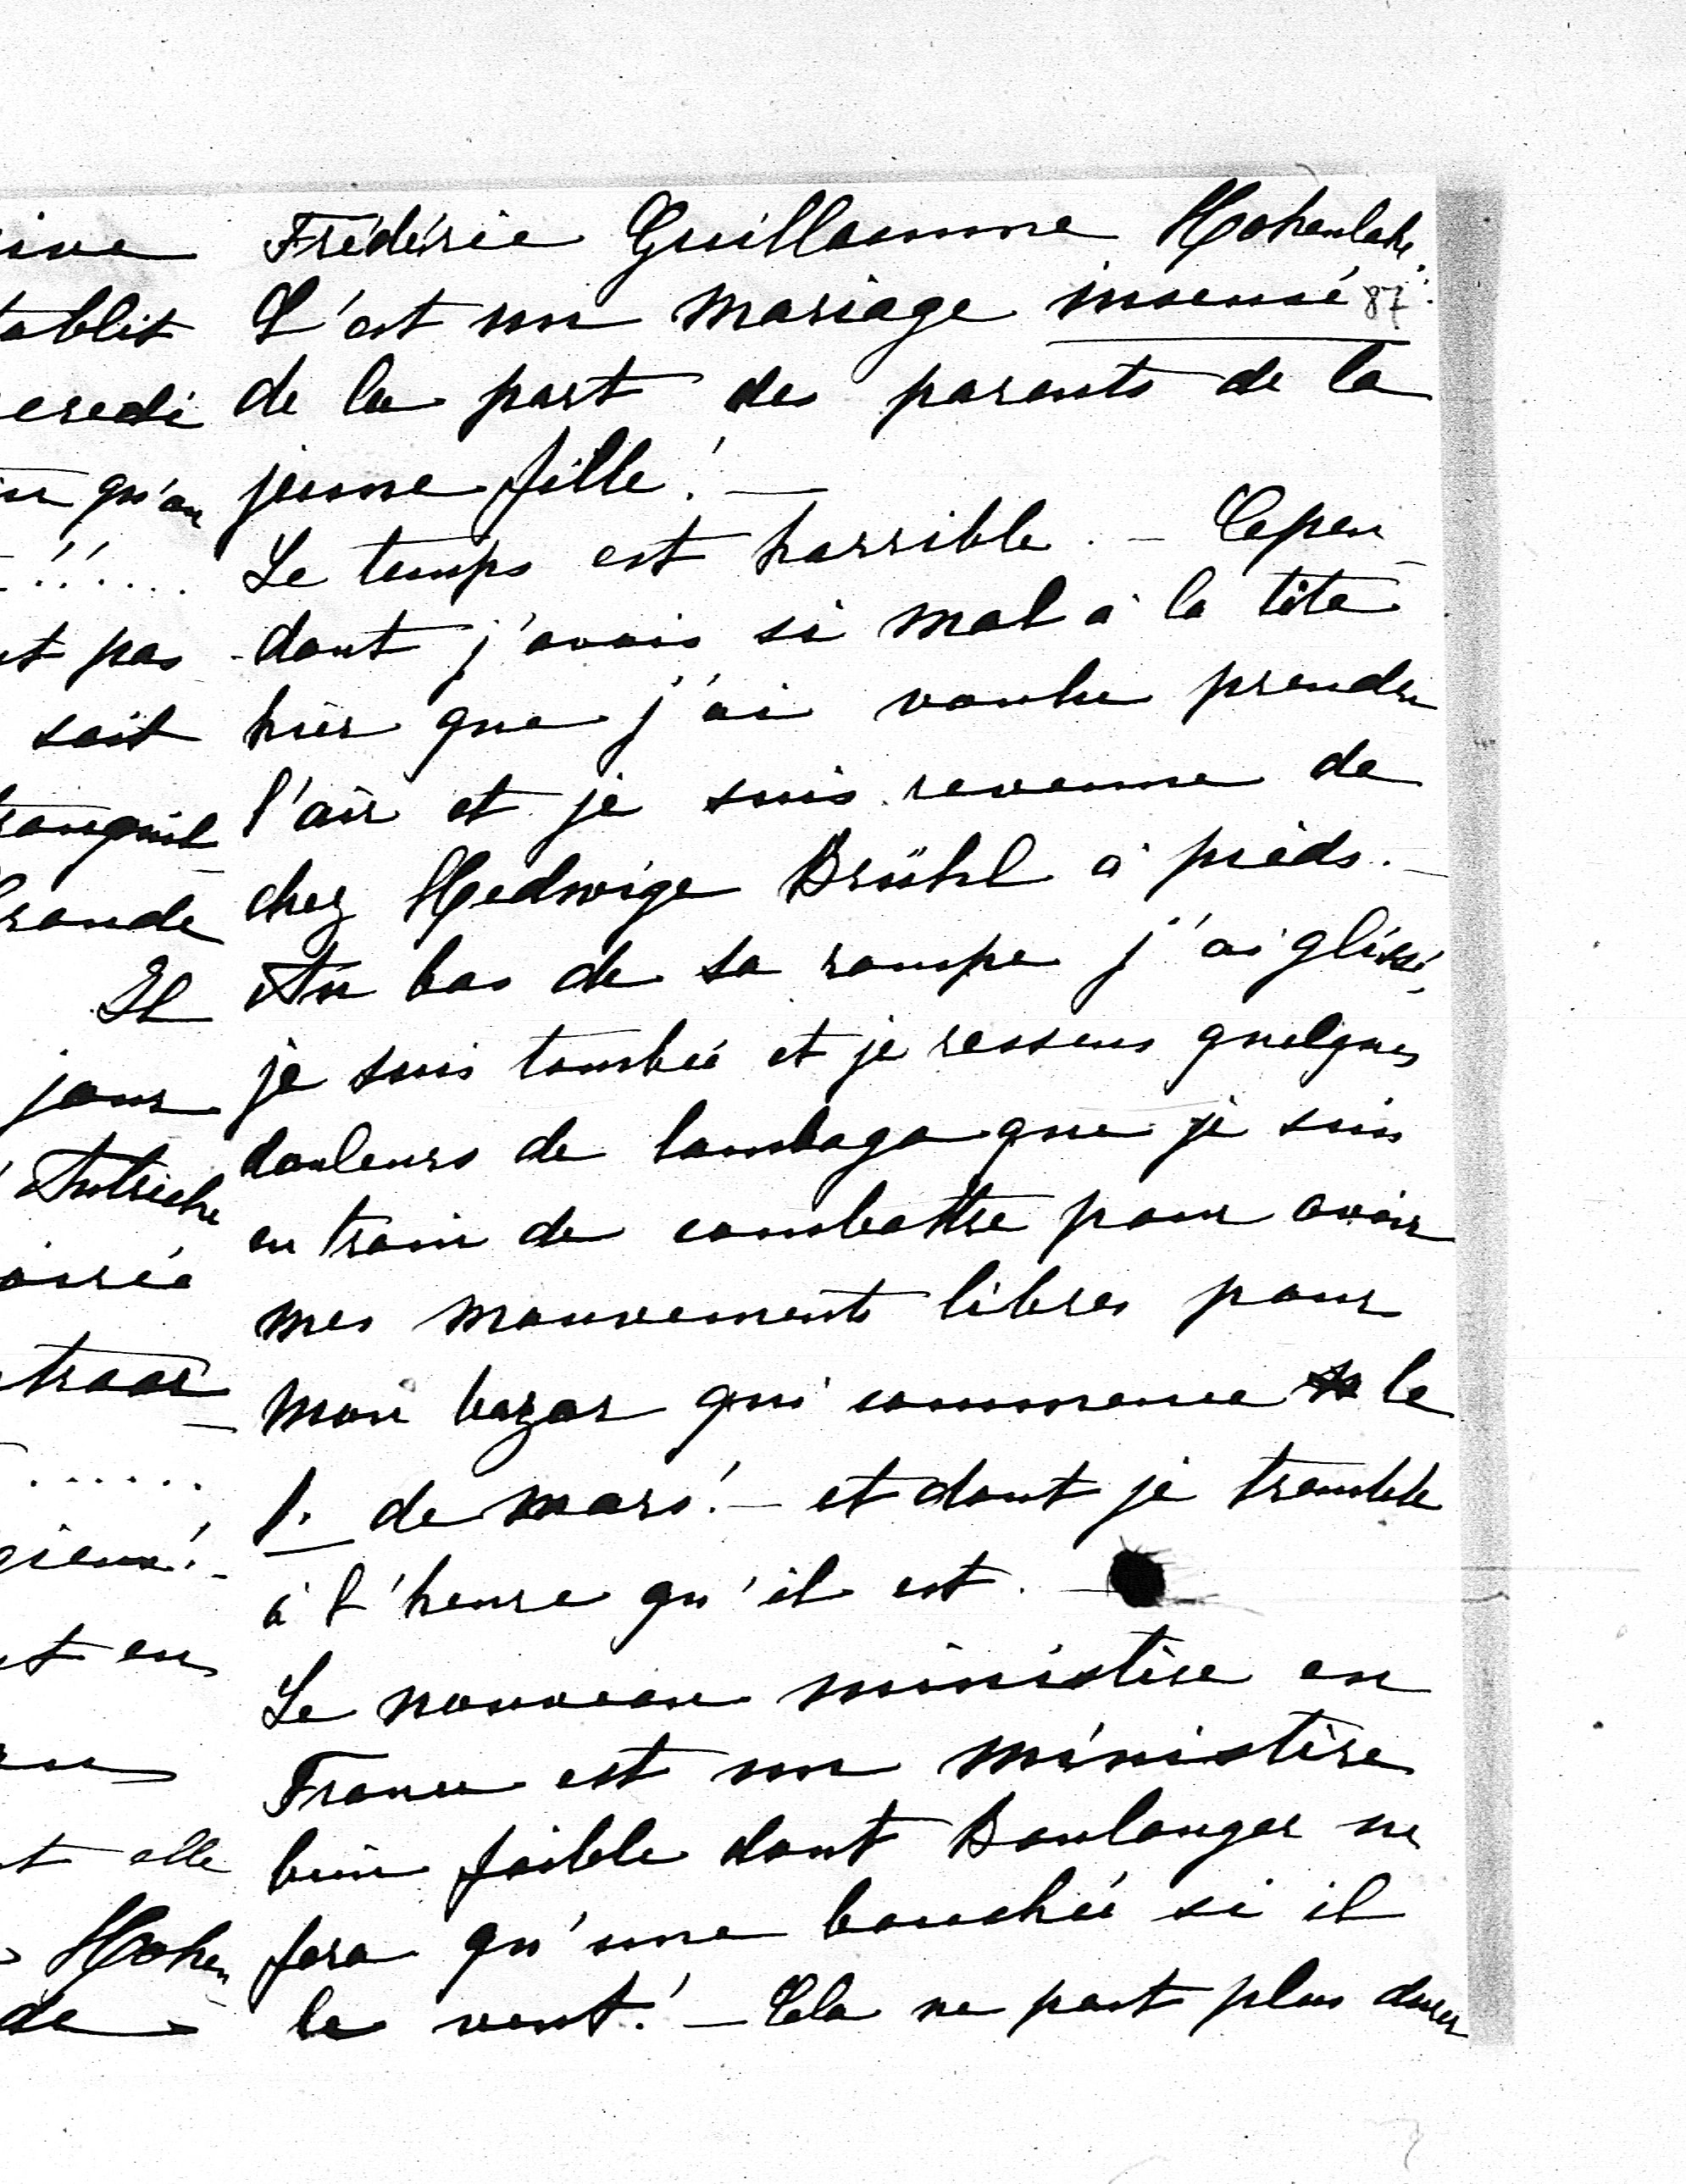 Frédéric Guillaume Hohenlohe.
C'est un mariage insensé 87
de la part des parents de la
jeune fille! —
Le temps est horrible. — Cepen-
-dant j'avais si mal à la tête
hier que j'ai voulu prendre
l'air et je suis revenue de
chez Hedwige Brühl à pieds. —
Au bas de sa rampe j'ai glissé,
je suis tombée et je ressens quelques
douleurs de lombago que je suis
en train de combattre pour avoir
mes mouvements libres pour
mon bazar qui commence le
1. de mars! — et dont je tremble
à l'heure qu'il est. —
Le nouveau ministère en
France est un ministère
bien faible dont Boulanger ne
fera qu'une bouchée si il
le veut! — Cela ne peut plus durer
ive
tablit
credi
qu'au
!!....
t pas
soit
tranquil-
Grande
Il
jour
Autriche
oirée
traor-
......
gieux! -
t en
t elle
Hohen
de -